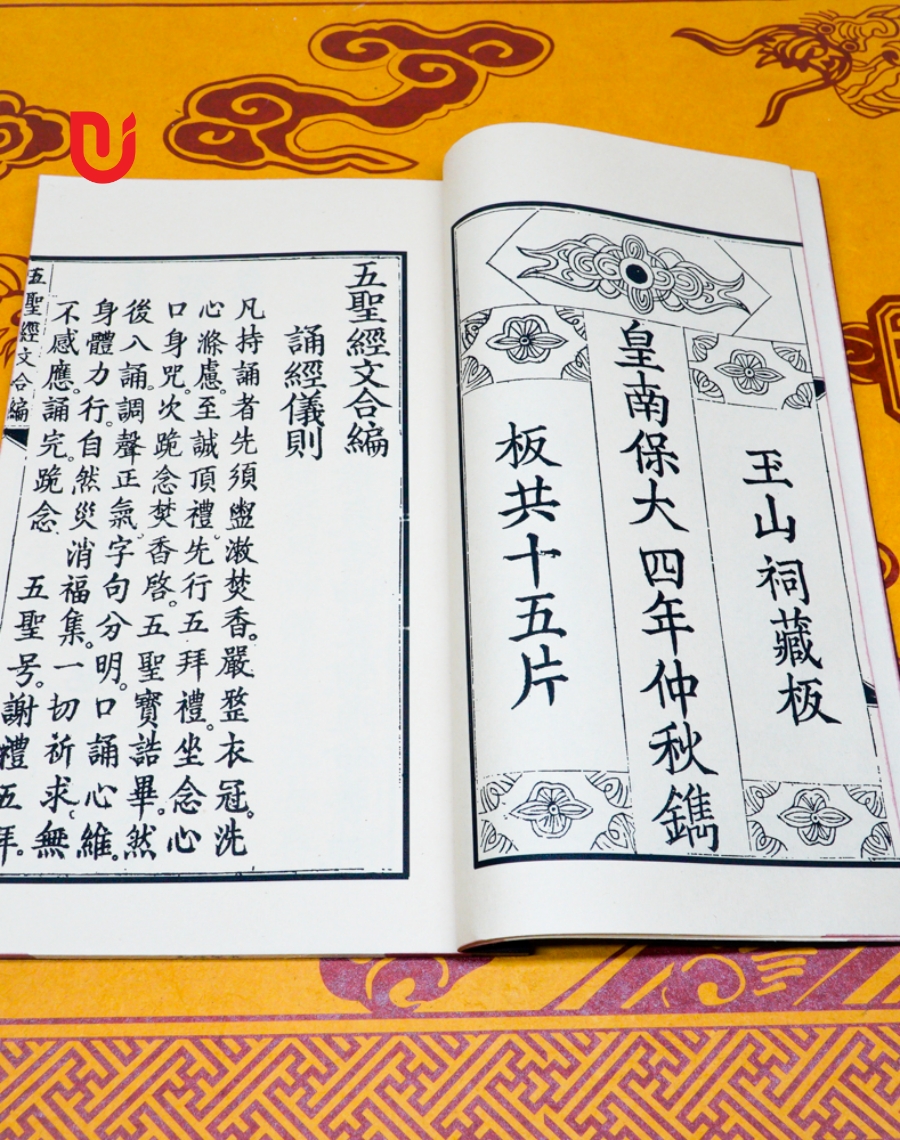 玉山祠藏板
皇南保大四年仲秋鐫
板共十五片
五聖經文合編
誦經儀則
凡持誦者先須盥漱焚香。嚴整衣冠。洗
心滌慮。至誠頂禮。先行五拜禮。坐念心
口身咒。次跪念焚香啓。五聖寶誥畢。然
後入誦。調聲正氣。字句分明。口誦心維。
身體力行。自然災消福集。一切祈求、無
不感應。誦完跪念　五聖号。謝禮五拜。
五聖經文合編